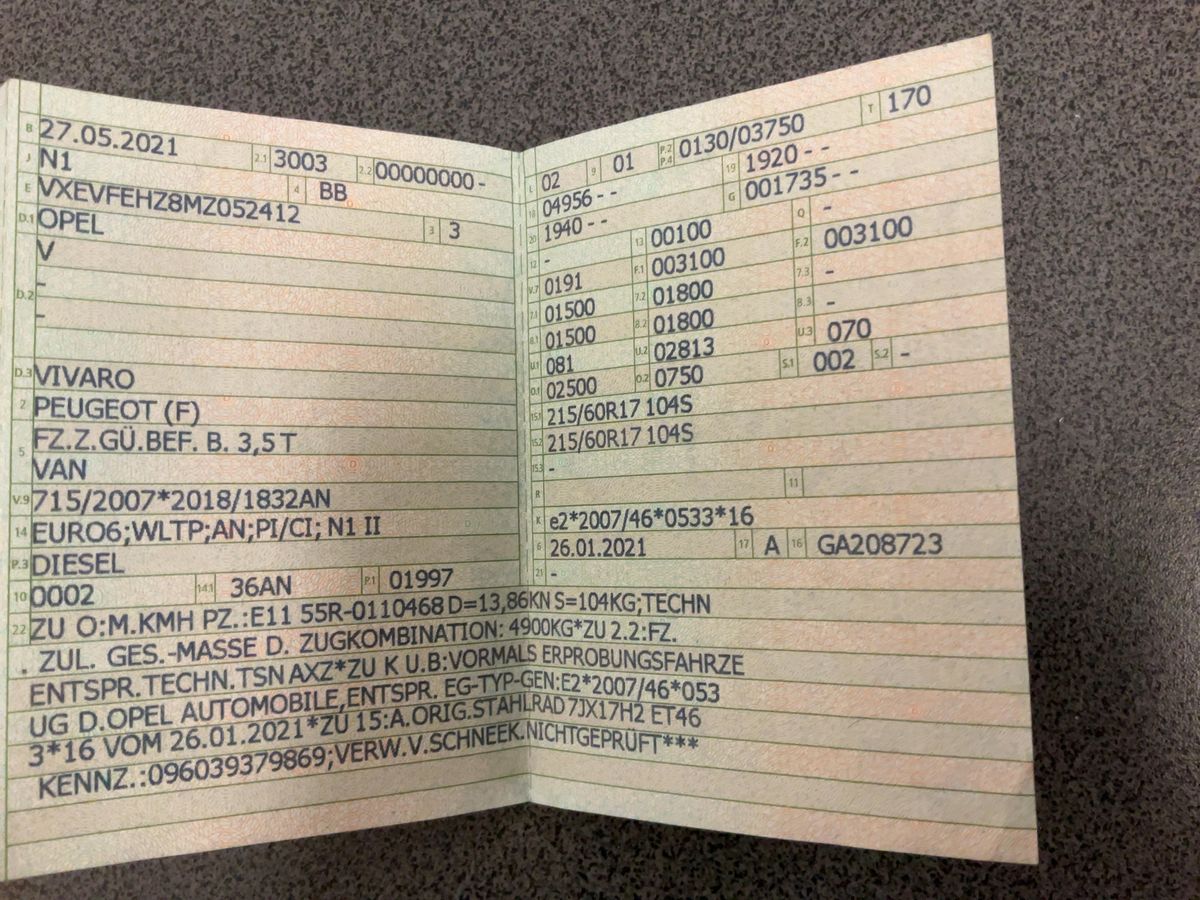 B 27.05.2021 2.1 3003 2.2 00000000-
J N1 4 BB
E VXEVFEHZ8MZ052412 3 3
D.1 OPEL
D.2 V
-
-
D.3 VIVARO
2 PEUGEOT (F)
5 FZ.Z.GÜ.BEF. B. 3,5 T
VAN
V.9 715/2007*2018/1832AN
14 EURO6;WLTP;AN;PI/CI; N1 II
P.3 DIESEL
10 0002 14.1 36AN P.1 01997
L 02 9 01 P.2 P.4 0130/03750 T 170
18 04956 - - 19 1920 - -
20 1940 - - G 001735 - -
12 - 13 00100 Q -
V.7 0191 F.1 003100 F.2 003100
7.1 01500 7.2 01800 7.3 -
8.1 01500 8.2 01800 8.3 -
U.1 081 U.2 02813 U.3 070
O.1 02500 O.2 0750 S.1 002 S.2 -
15.1 215/60R17 104S
15.2 215/60R17 104S
15.3 -
R 11
K e2*2007/46*0533*16
6 26.01.2021 17 A 16 GA208723
21 -
22 ZU O:M.KMH PZ.:E11 55R-0110468 D=13,86KN S=104KG;TECHN
. ZUL. GES.-MASSE D. ZUGKOMBINATION: 4900KG*ZU 2.2:FZ.
ENTSPR.TECHN.TSN AXZ*ZU K U.B:VORMALS ERPROBUNGSFAHRZE
UG D.OPEL AUTOMOBILE,ENTSPR. EG-TYP-GEN:E2*2007/46*053
3*16 VOM 26.01.2021*ZU 15:A.ORIG.STAHLRAD 7JX17H2 ET46
KENNZ.:096039379869;VERW.V.SCHNEEK.NICHTGEPRÜFT***